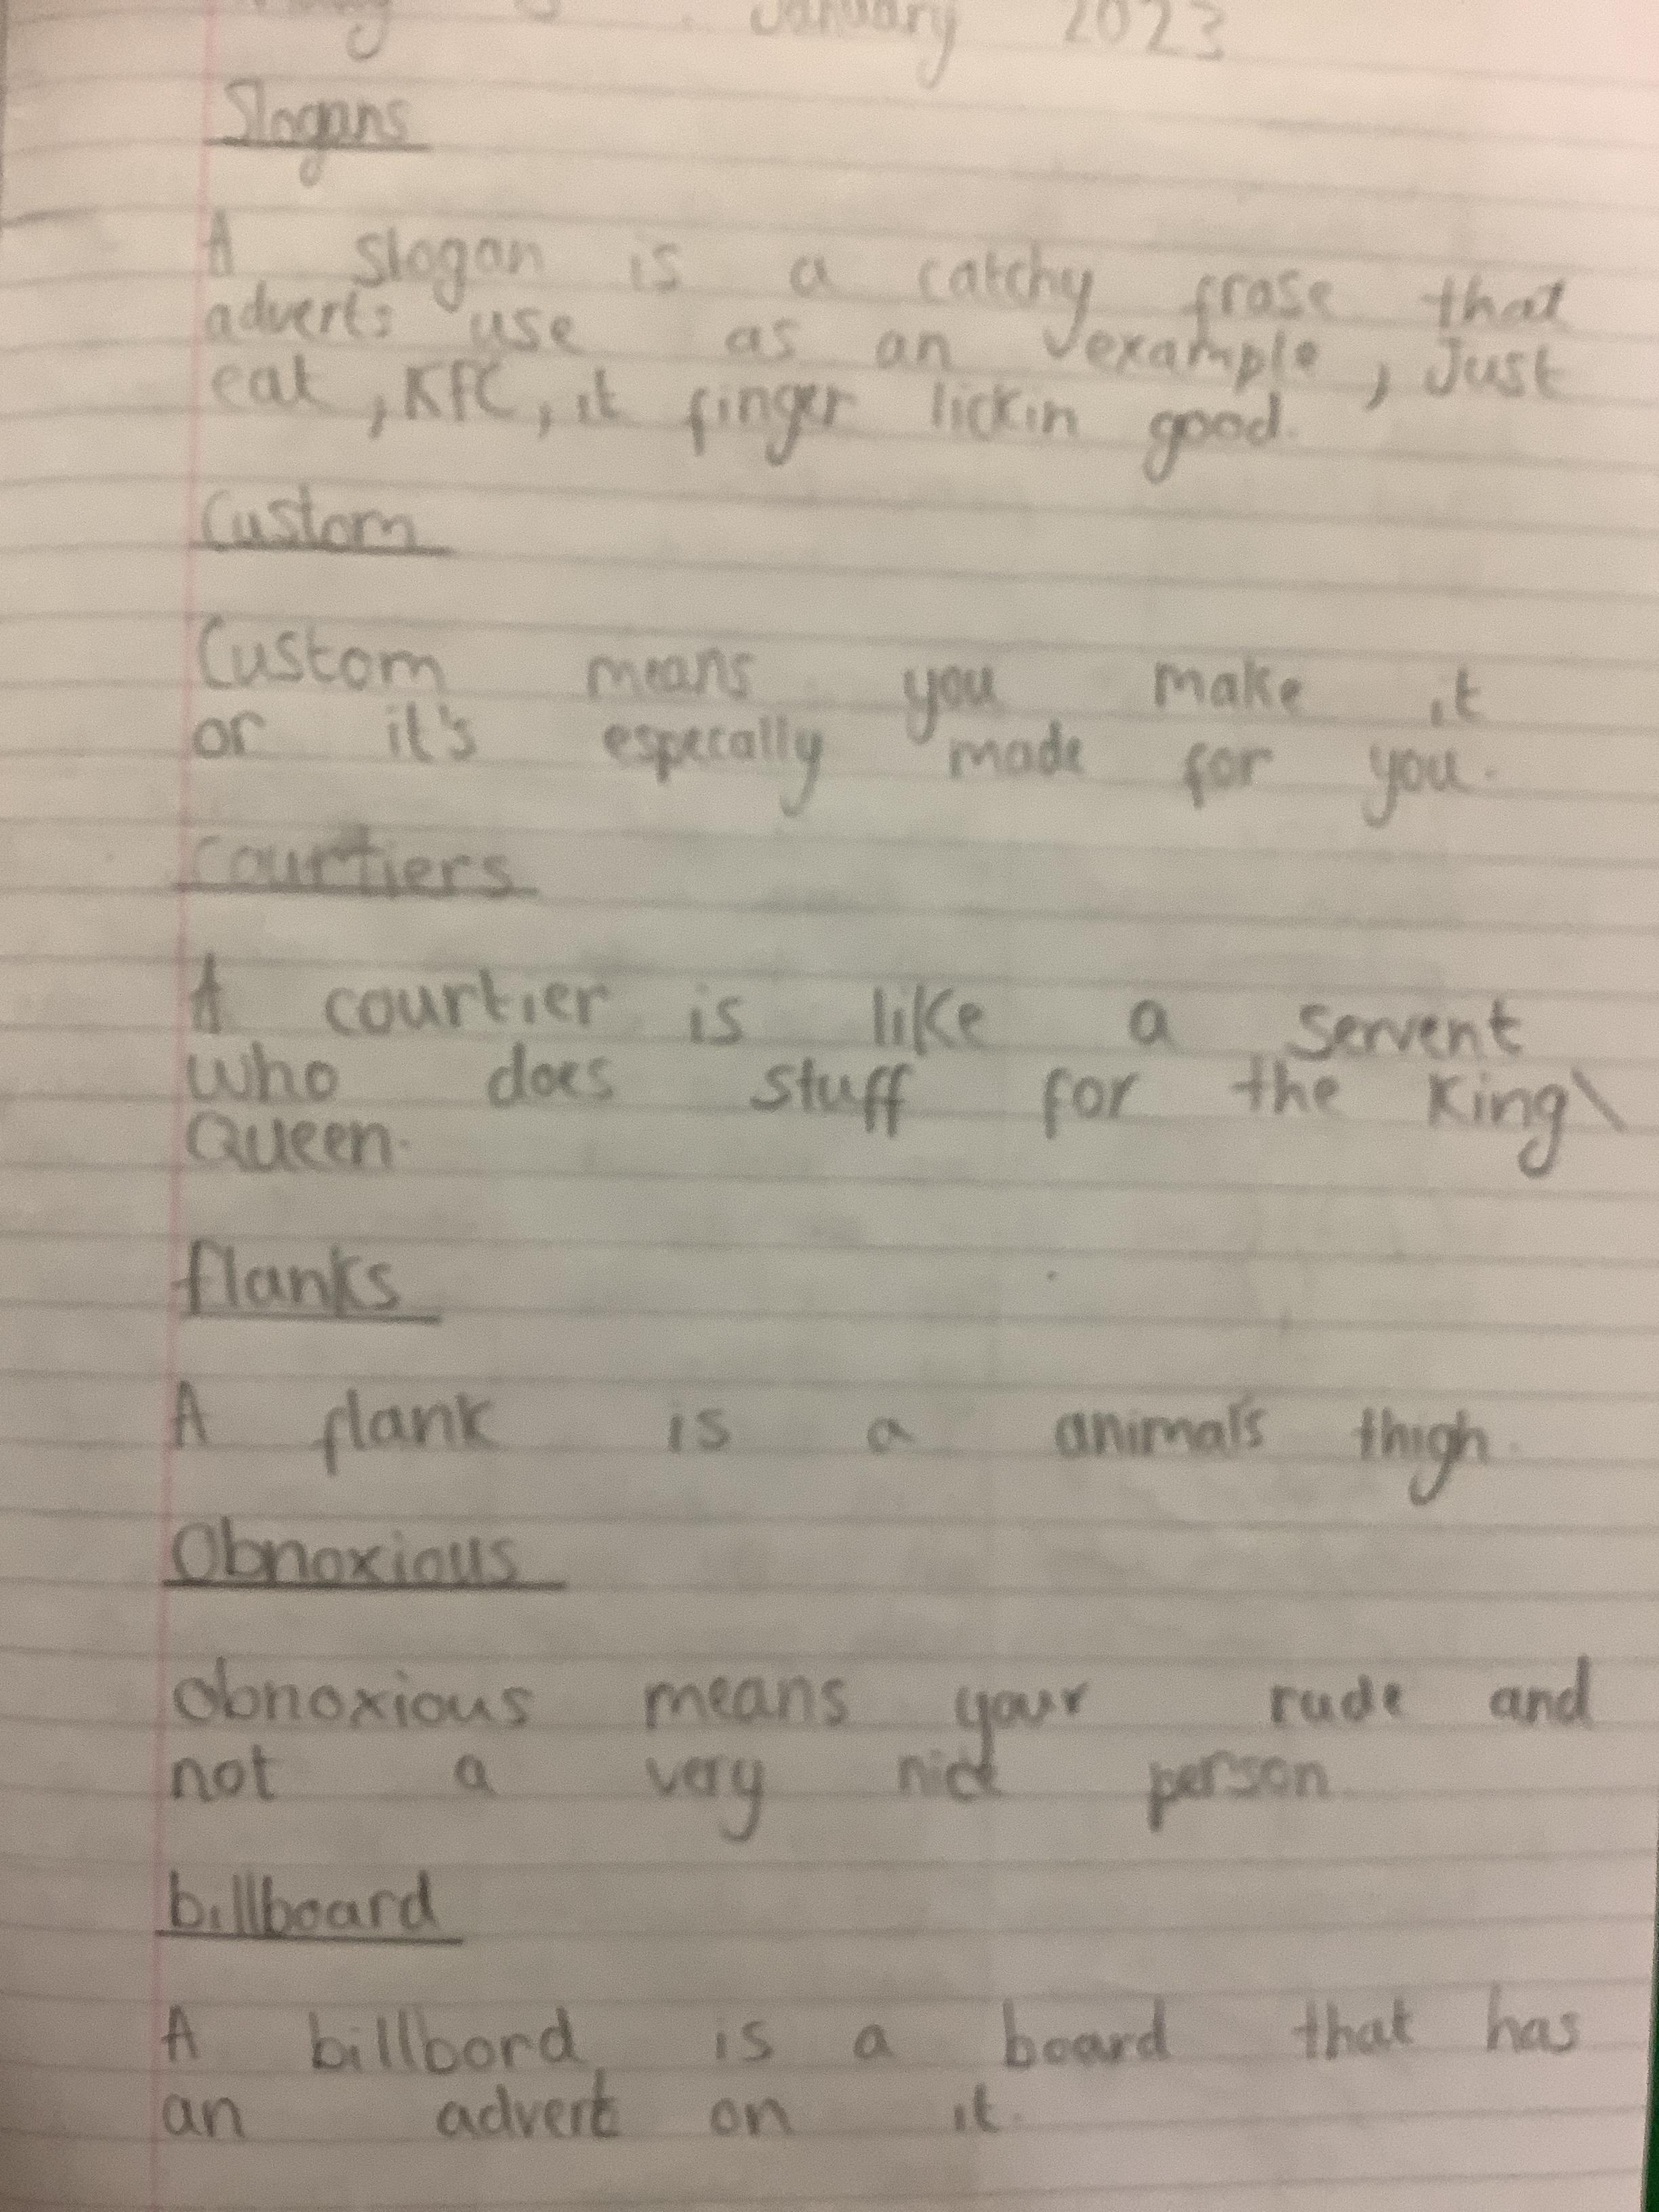 January 2023
Slogans
A slogan is a catchy frase that
adverts use as an example, Just
eat, KFC, it finger lickin good.
Custom
Custom means you make it
or it's especally made for you.
Courtiers
A courtier is like a servent
who does stuff for the King\
Queen.
flanks
A flank is a animal's thigh.
Obnoxious
obnoxious means your rude and
not a very nice person
billboard
A billbord is a board that has
an advert on it.